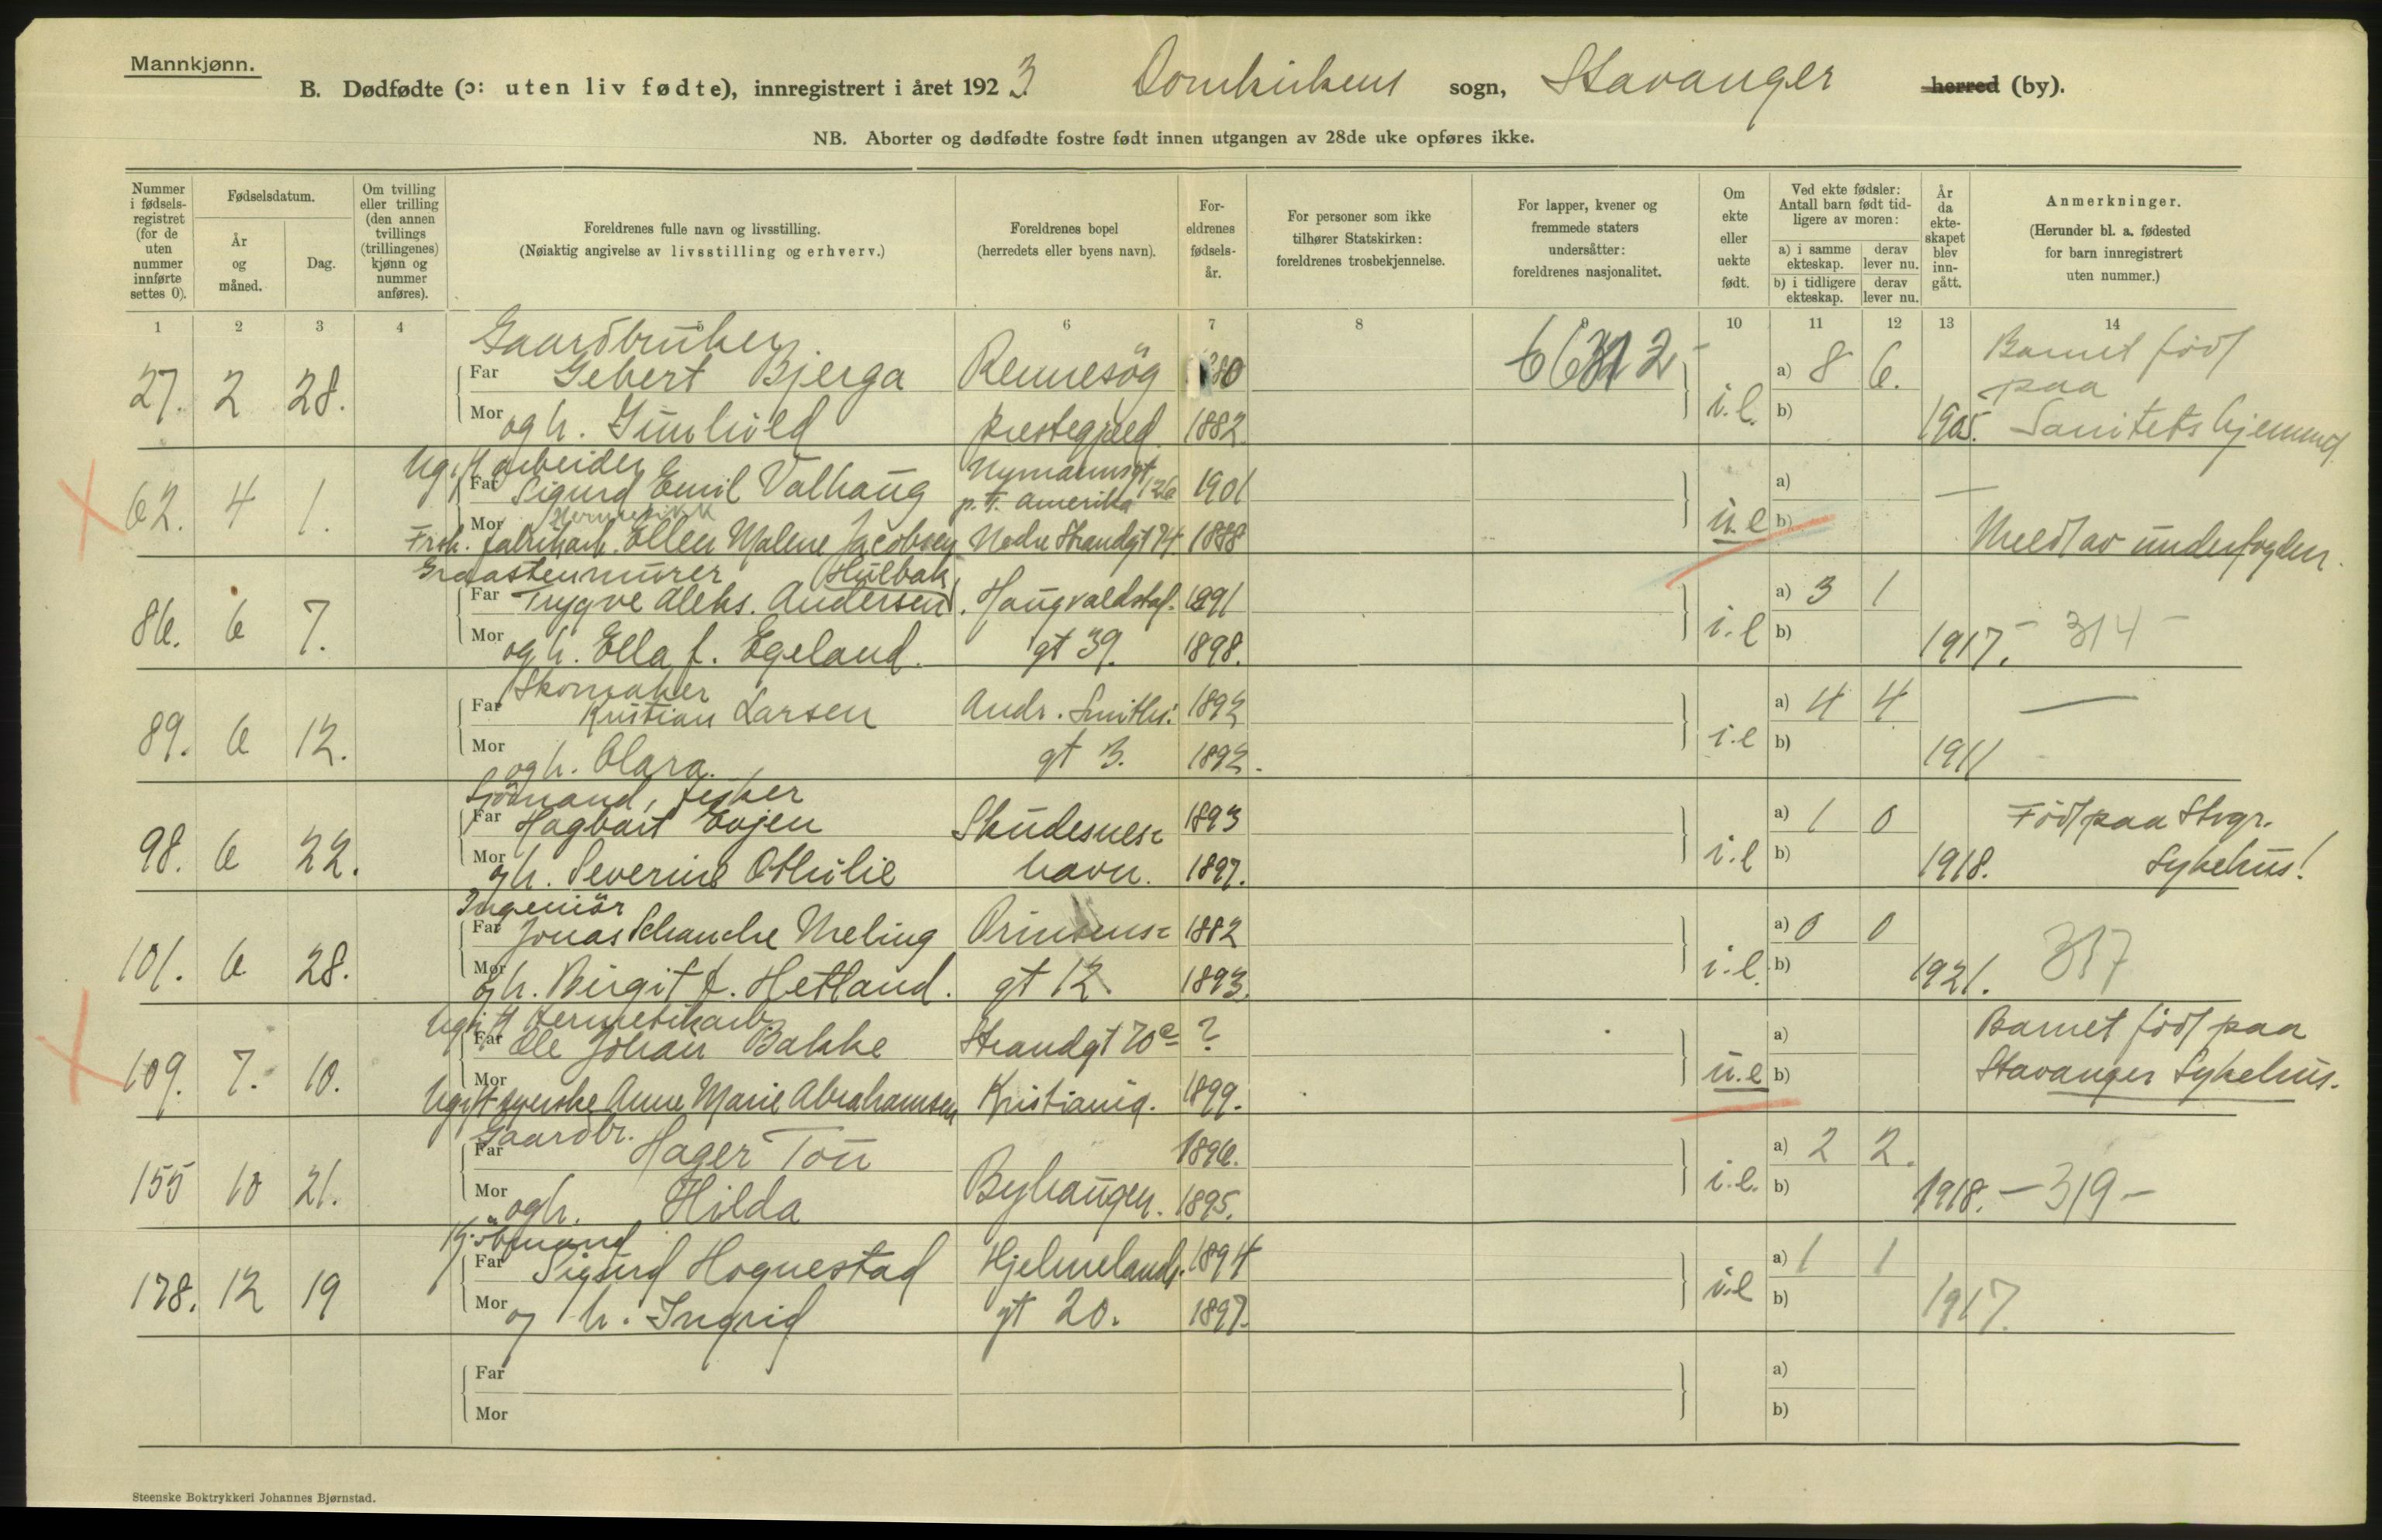 Mannkjønn.
B. Dødfødte (ɔ: uten liv fødte), innregistrert i året 1923. Domkirkens sogn, Stavanger herred (by).
NB. Aborter og dødfødte fostre født innen utgangen av 28de uke opføres ikke.
Nummer i fødsels-registret (for de uten nummer innførte settes 0).
Fødselsdatum.
År og måned.
Dag.
Om tvilling eller trilling (den annen tvillings (trillingenes) kjønn og nummer anføres).
Foreldrenes fulle navn og livsstilling.
(Nøiaktig angivelse av livsstilling og erhverv.)
Foreldrenes bopel
(herredets eller byens navn).
For-eldrenes fødsels-år.
For personer som ikke tilhører Statskirken: foreldrenes trosbekjennelse.
For lapper, kvener og fremmede staters undersåtter: foreldrenes nasjonalitet.
Om ekte eller uekte født.
Ved ekte fødsler: Antall barn født tid-ligere av moren:
a) i samme ekteskap. derav lever nu.
b) i tidligere ekteskap. derav lever nu.
År da ekte-skapet blev inn-gått.
Anmerkninger.
(Herunder bl. a. fødested for barn innregistrert uten nummer.)
1 2 3 4 5 6 7 8 9 10 11 12 13 14
Gaardbruker
27. 2 28. Far Gebert Bjerga Rennesöy 1880 a) 8 6. Barnet född paa
Mor og h. Gunhild prestegjeld. 1882. i.e. b) 1905. Sanitetshjemmet
Ugift arbeider Nymannsgt 126
62. 4 1. Far Sigurd Emil Valhaug p.t. Amerika 1901 a) —
Mor Frk. fabrikarb. Ellen Malene Jacobsen Nedre Strandgt 74 1888 u.e b) Meldt av underfogden.
Graastenmurer Hulbak
86. 6 7. Far Trygve Aleks. Andersen. Haugvaldstad. 1891 a) 3 1
Mor og h. Ella f. Egeland. gt 39. 1898. i.e b) 1917. – 314 –
Skomaker
89. 6 12. Far Kristian Larsen Andr. Smiths. 1892 a) 4 4 —
Mor og h. Clara. gt 3. 1892. i.e b) 1911
Sjömand, fisker
98. 6 22. Far Hagbart Evjen Skudesnes- 1893 a) 1 0 Född paa Stvgr.
Mor og h. Severine Othilie havn. 1897. i.e b) 1918. Sykehus!
Ingeniör
101. 6 28. Far Jonas Schanche Meling Prinsens- 1882 a) 0 0
Mor og h. Birgit f. Hetland. gt 12. 1893. i.e. b) 1921. 317
Ugift hermetikarb.
109. 7. 10. Far Ole Johan Bakke Strandgt 70a ? a) Barnet född paa
Mor Ugift syerske Anne Marie Abrahamsen Kristianig. 1899. u.e b) Stavanger Sykehus.
Gaardbr.
155 10 21. Far Hager Tou 1896. a) 2 2.
Mor og h. Hilda Byhaugen. 1895. i.e. b) 1918. – 319 –
Kjöbmand
178. 12 19 Far Sigurd Hognestad Hjelmelands. 1894 a) 1 1
Mor og h. Ingrid gt 20. 1897. i.e b) 1917.
Far a)
Mor b)
Steenske Boktrykkeri Johannes Bjørnstad.